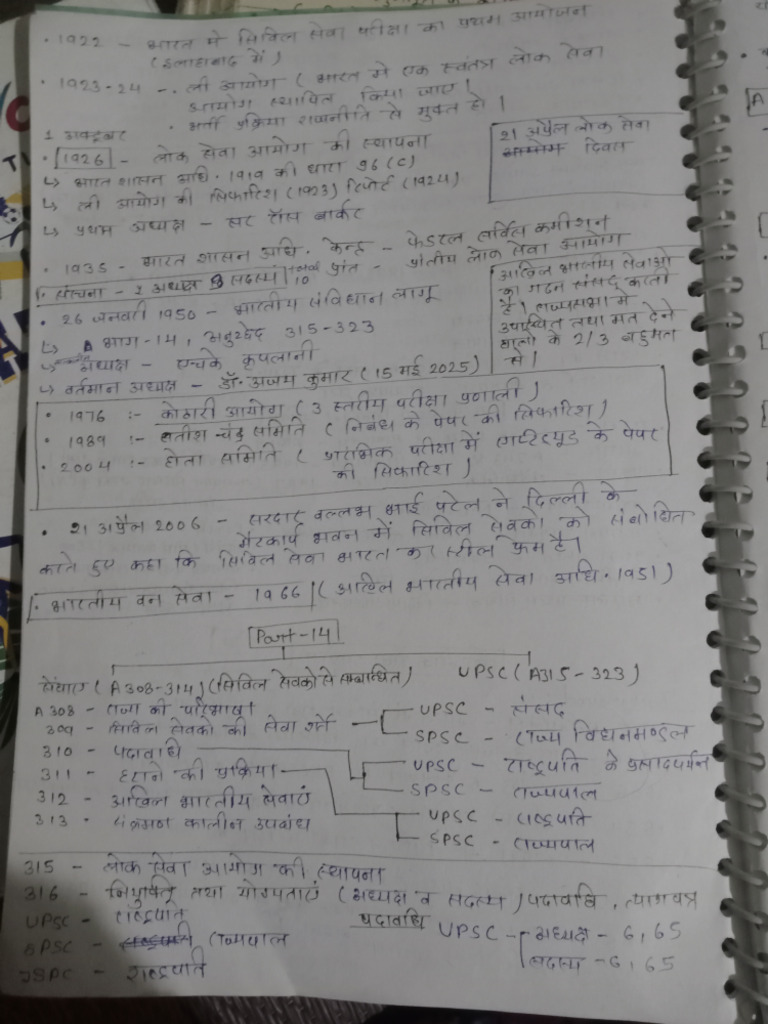 • 1922 - भारत में सिविल सेवा परीक्षा का प्रथम आयोजन
(इलाहाबाद में)
• 1923-24 - ली आयोग ( भारत में एक स्वतंत्र लोक सेवा
आयोग स्थापित किया जाए।
• भर्ती प्रक्रिया राजनीति से मुक्त हो।
1 अक्टूबर
• 1926 - लोक सेवा आयोग की स्थापना
↳ भारत शासन अधि. 1919 की धारा 96 (C)
↳ ली आयोग की सिफारिश (1923) रिपोर्ट (1924)
↳ प्रथम अध्यक्ष - सर रॉस बार्कर
21 अप्रैल लोक सेवा
दिवस
• 1935 - भारत शासन अधि. केन्द्र - फेडरल सर्विस कमीशन
प्रांत - प्रांतीय लोक सेवा आयोग
• संरचना - 1 अध्यक्ष सदस्य 10
• 26 जनवरी 1950 - भारतीय संविधान लागू
↳ भाग-14, अनुच्छेद 315-323
↳ अध्यक्ष - एचके कृपलानी
↳ वर्तमान अध्यक्ष - डॉ. अजय कुमार (15 मई 2025)
अखिल भारतीय सेवाओं
का गठन संसद करती
है। राज्यसभा में
उपस्थित तथा मत देने
वालो के 2/3 बहुमत
से।
• 1976 :- कोठारी आयोग (3 स्तरीय परीक्षा प्रणाली)
• 1989 :- सतीश चंद्र समिति ( निबंध के पेपर की सिफारिश)
• 2004 :- होता समिति ( प्रारंभिक परीक्षा में एप्टीट्यूड के पेपर
की सिफारिश)
• 21 अप्रैल 2006 - सरदार वल्लभ भाई पटेल ने दिल्ली के
मैटकार्प भवन में सिविल सेवको को संबोधित
करते हुए कहा कि सिविल सेवा भारत का स्टील फ्रेम है।
• भारतीय वन सेवा - 1966 (अखिल भारतीय सेवा अधि. 1951)
Part-14
सेवाएं (A308-314) (सिविल सेवको से सम्बन्धित)
UPSC (A315-323)
A308 - राज्य की परिभाषा
309 - सिविल सेवको की सेवा शर्ते
UPSC - संसद
SPSC - राज्य विधानमण्डल
310 - पदावधि
UPSC - राष्ट्रपति के प्रसादपर्यन्त
SPSC - राज्यपाल
311 - हटाने की प्रक्रिया
UPSC - राष्ट्रपति
SPSC - राज्यपाल
312 - अखिल भारतीय सेवाएं
313 - संक्रमण कालीन उपबंध
315 - लोक सेवा आयोग की स्थापना
316 - नियुक्ति तथा योग्यताएं (अध्यक्ष व सदस्य) पदावधि, त्यागपत्र
UPSC - राष्ट्रपति
SPSC - राज्यपाल
JSPC - राष्ट्रपति
पदावधि UPSC - अध्यक्ष - 6, 65
सदस्य - 6, 65